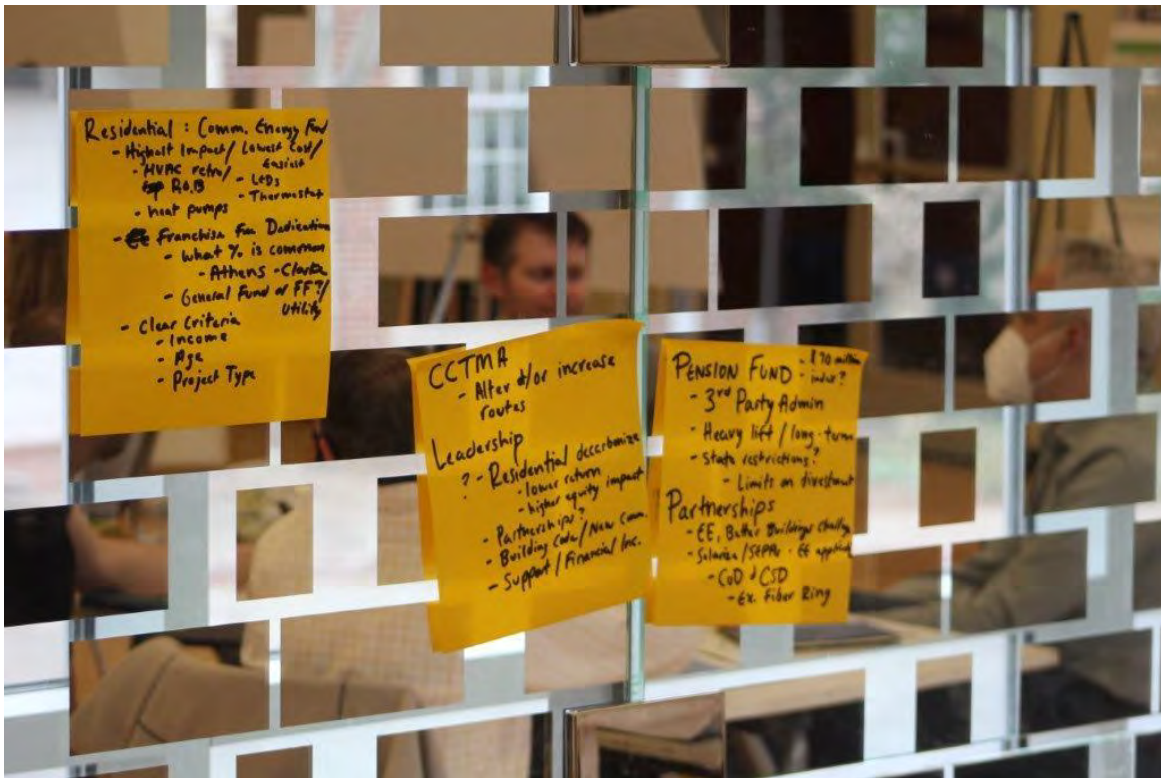 Residential : Comm. Energy Fund
- Highest Impact / Lowest Cost /
Easiest
- HVAC retro/
R.O.B
- LEDs
- Thermostat
- heat pumps
- Franchise Fee Dedication
- what % is common
- Athens - Clarke
- General Fund or FF?/
Utility
- Clear Criteria
- Income
- Age
- Project Type
CCTMA
- Alter &/or increase
routes
Leadership
? - Residential decarbonize
- lower return
- higher equity impact
- Partnerships?
- Building Code / New Comm.
- Support / Financial Inc.
PENSION FUND - $70 million
- 3rd Party Admin
- Heavy lift / long-term
- State restrictions?
- Limits on divestment
Partnerships
- EE, Better Buildings Challenge
- Solarize / SEPPs - EE
- CoD & CSD
- Ex. Fiber Ring